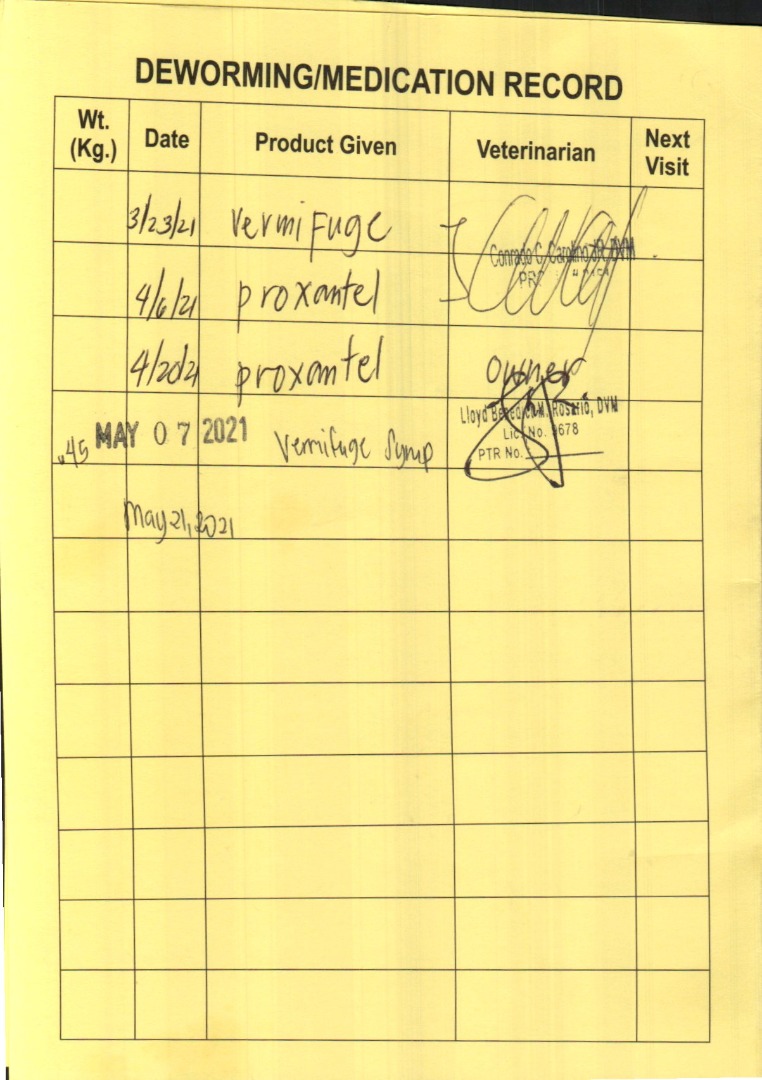 DEWORMING/MEDICATION RECORD
Wt. (Kg.) Date Product Given Veterinarian Next Visit
3/23/21 vermifuge Conrado C. Carolino JR, DVM
PRC
4/6/21 proxantel
4/20/21 proxantel owner
.45 MAY 07 2021 Vermifuge Syrup Lloyd Benedict M. Rosario, DVM
Lic. No. 9678
PTR No.
May 21, 2021